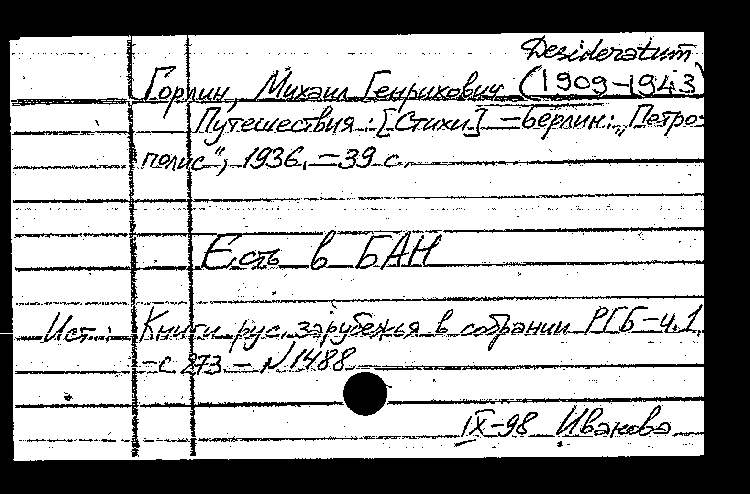 Desideratum
Горлин, Михаил Генрихович (1909-1943)
Путешествия : [Стихи] – Берлин: „Петро-
полис“, 1936. – 39 с.
Есть в БАН
Ист.: Книги рус. зарубежья в собрании РГБ – ч.1.
– с 273 – N 1488
IX-98 Иванова